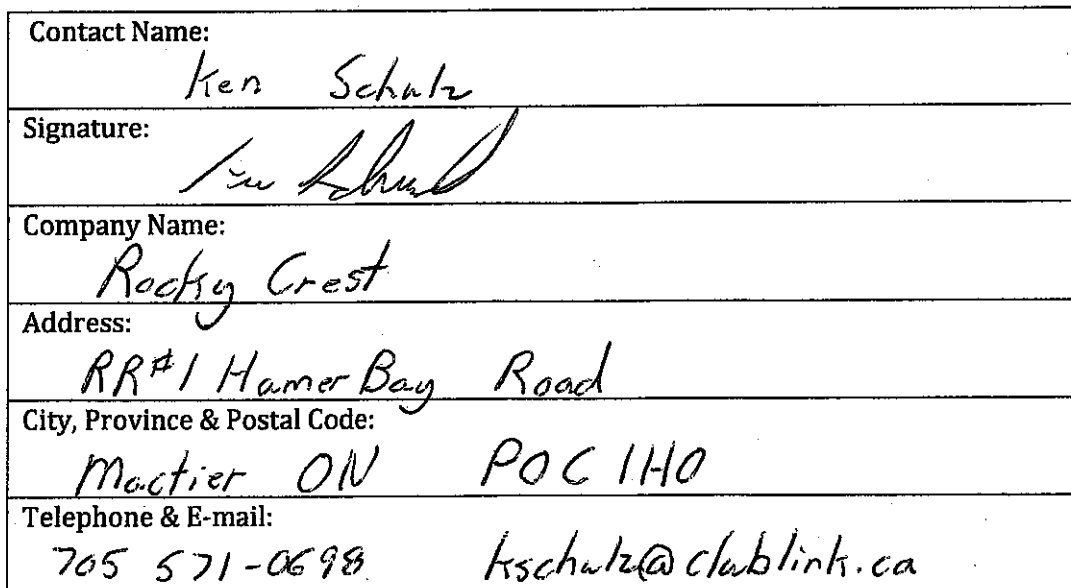 Contact Name:
Ken Schulz
Signature:
Company Name:
Rocky Crest
Address:
RR#1 Hamer Bay Road
City, Province & Postal Code:
Mactier ON P0C 1H0
Telephone & E-mail:
705 571-0698 kschulz@clublink.ca